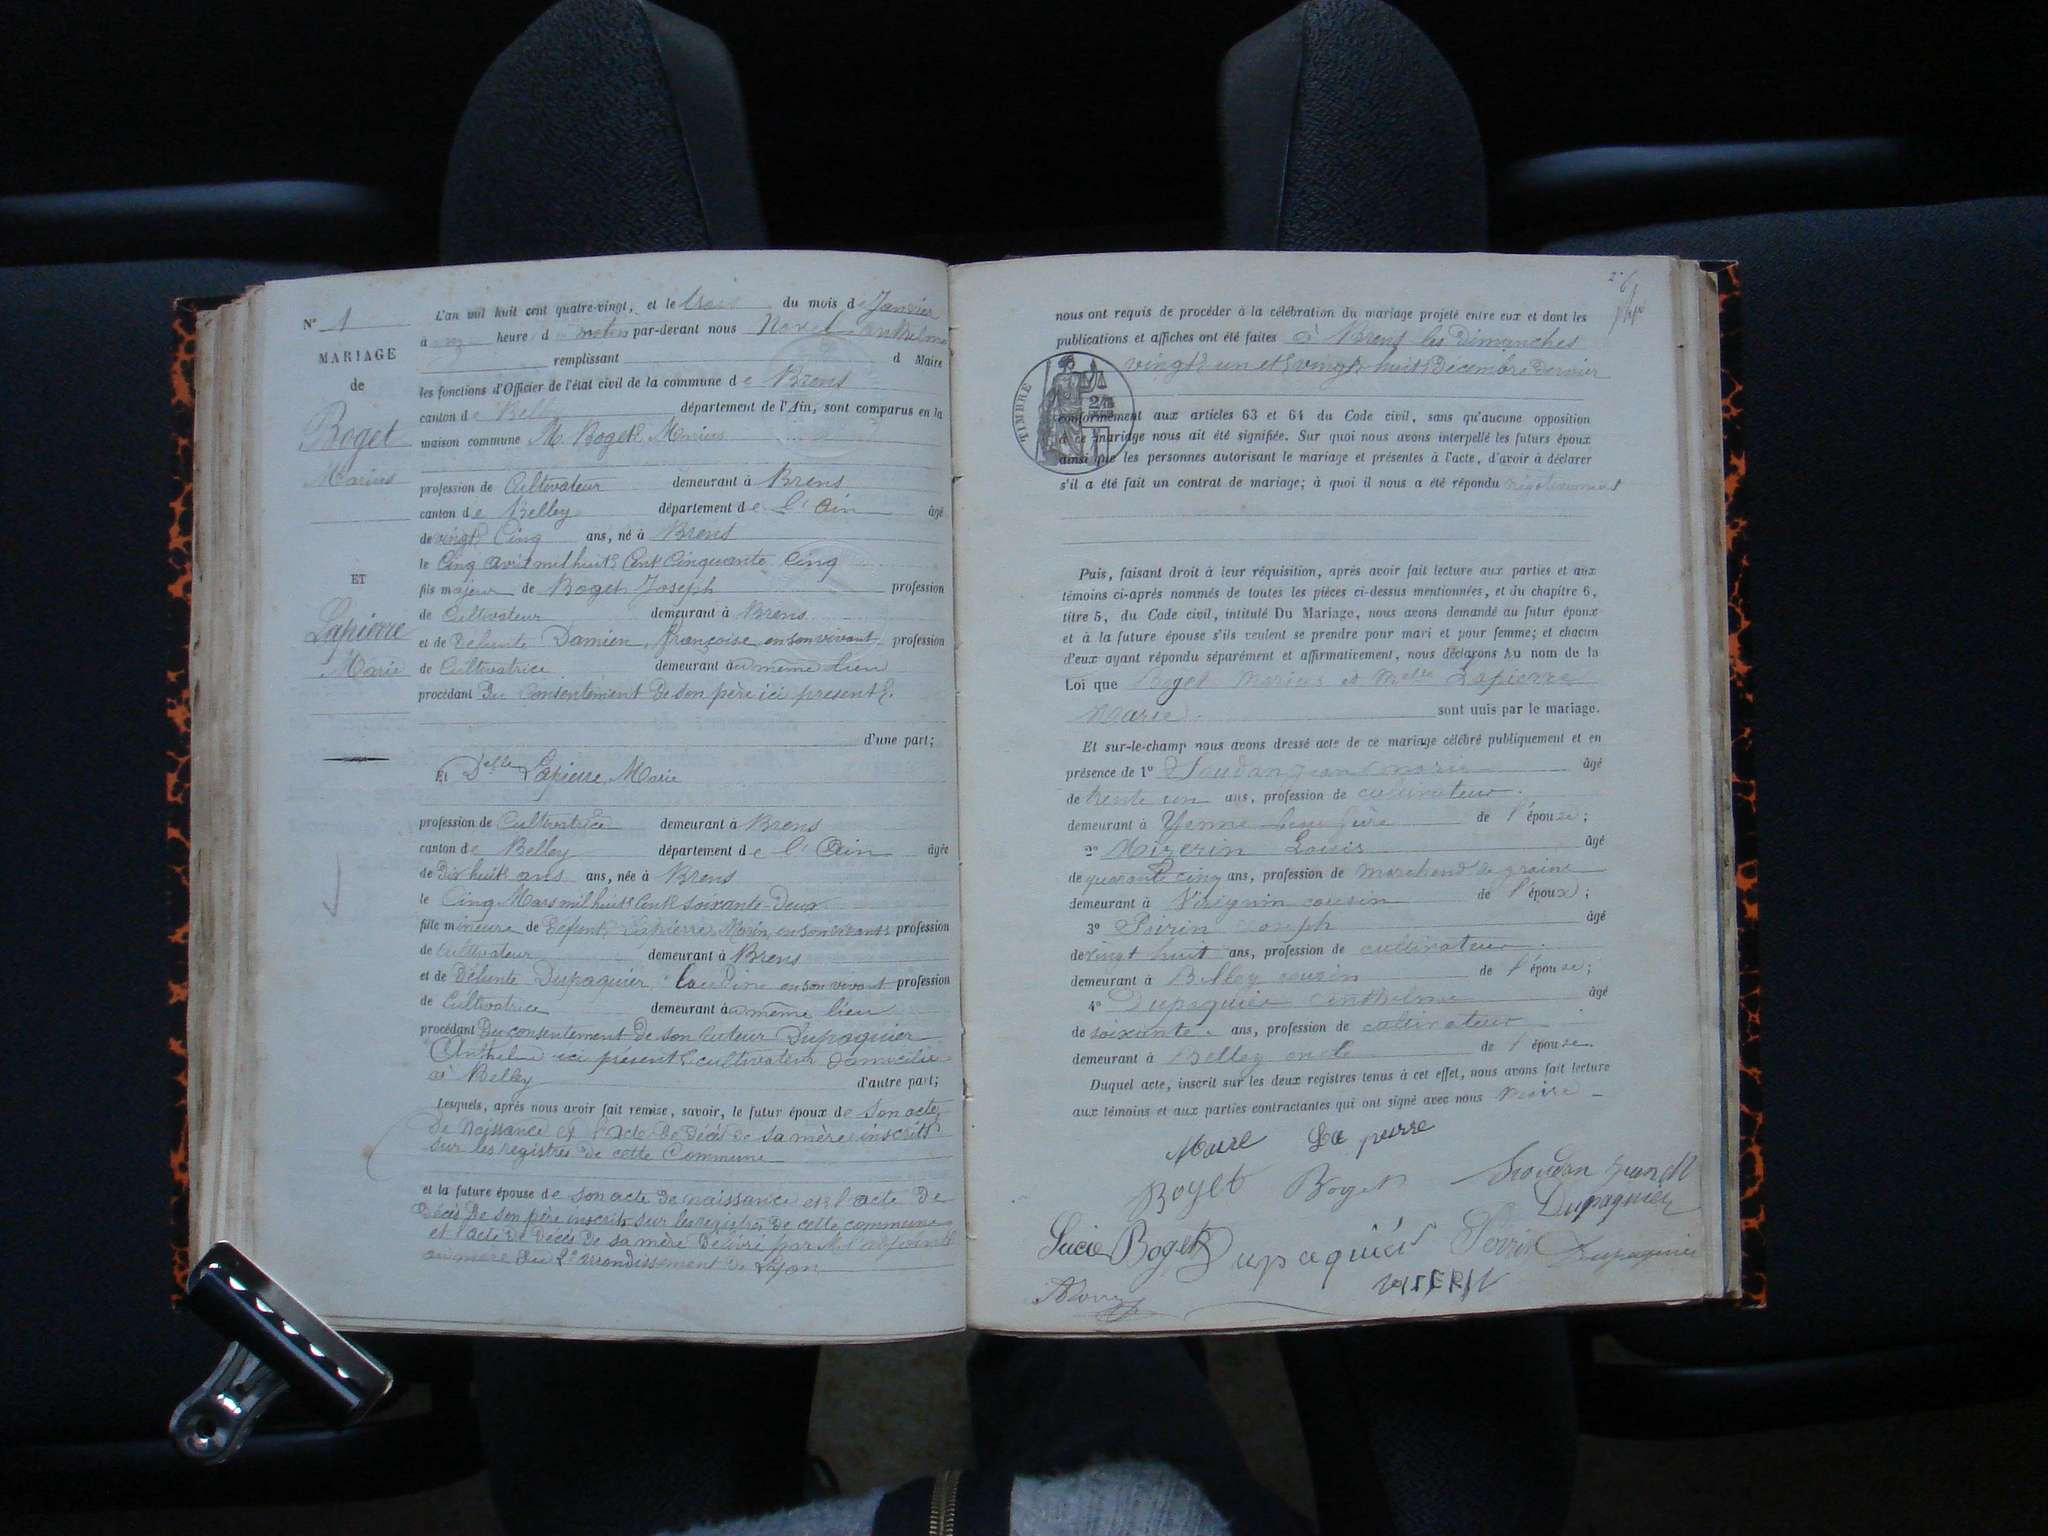 N° 1
MARIAGE
de
Boget
Marius
ET
Lapierre
Marie
L'an mil huit cent quatre-vingt, et le trois du mois de Janvier
à heure d par-devant nous anthelme
remplissant d Maire
les fonctions d'Officier de l'état civil de la commune de Brens
canton de Belley département de l'Ain, sont comparus en la
maison commune M. Boget Marius
profession de Cultivateur demeurant à Brens
canton de Belley département de l'Ain âgé
de vingt Cinq ans, né à Brens
le Cinq avril mil huit Cent Cinquante Cinq
fils majeur de Boget Joseph profession
de Cultivateur demeurant à Brens
et de Défunte Damien françoise en son vivant profession
de Cultivatrice demeurant à même lieu
procédant Du Consentement De son père ici présent
d'une part;
Et Delle Lapierre Marie
profession de Cultivatrice demeurant à Brens
canton de Belley département de l'Ain âgée
de Dix huit ans ans, née à Brens
le Cinq Mars mil huit Cent soixante Deux
fille mineure de Défunt Lapierre en son vivant profession
de Cultivateur demeurant à Brens
et de Défunte Dupaquier Claudine en son vivant profession
de Cultivatrice demeurant à même lieu
procédant Du consentement De son tuteur Dupaquier
Anthelme ici présent cultivateur Domicilié
à Belley d'autre part;
Lesquels, après nous avoir fait remise, savoir, le futur époux de son acte
De Naissance et l'acte De Décès De sa mère inscrits
sur les registres De cette Commune
et la future épouse de son acte De naissance et l'acte De
Décès De son père inscrits sur les registres De cette commune
et l'acte De Décès De sa mère Délivré par M. l'adjoint
au maire du 2e arrondissement De Lyon
nous ont requis de procéder à la célébration du mariage projeté entre eux et dont les
publications et affiches ont été faites à Brens les Dimanches
vingt un et vingt huit Décembre Dernier
TIMBRE
conformément aux articles 63 et 64 du Code civil, sans qu'aucune opposition
à ce mariage nous ait été signifiée. Sur quoi nous avons interpellé les futurs époux
ainsi que les personnes autorisant le mariage et présentes à l'acte, d'avoir à déclarer
s'il a été fait un contrat de mariage; à quoi il nous a été répondu négativement
Puis, faisant droit à leur réquisition, après avoir fait lecture aux parties et aux
témoins ci-après nommés de toutes les pièces ci-dessus mentionnées, et du chapitre 6,
titre 5, du Code civil, intitulé Du Mariage, nous avons demandé au futur époux
et à la future épouse s'ils veulent se prendre pour mari et pour femme; et chacun
d'eux ayant répondu séparément et affirmativement, nous déclarons Au nom de la
Loi que Boget Marius et Melle Lapierre
Marie sont unis par le mariage.
Et sur-le-champ nous avons dressé acte de ce mariage célébré publiquement et en
présence de 1° jean marie âgé
de trente un ans, profession de cultivateur
demeurant à Yenne beau frère de l'épouse;
2° Louis âgé
de quarante cinq ans, profession de marchand de grains
demeurant à Virignin cousin de l'époux;
3° Joseph âgé
de vingt huit ans, profession de cultivateur
demeurant à Belley cousin de l'épouse;
4° Dupaquier anthelme âgé
de soixante ans, profession de cultivateur
demeurant à Belley oncle de l'épouse.
Duquel acte, inscrit sur les deux registres tenus à cet effet, nous avons fait lecture
aux témoins et aux parties contractantes qui ont signé avec nous Maire
La pierre
Boget Boget
Dupaquier
Lucie Boget Dupaquier Dupaquier